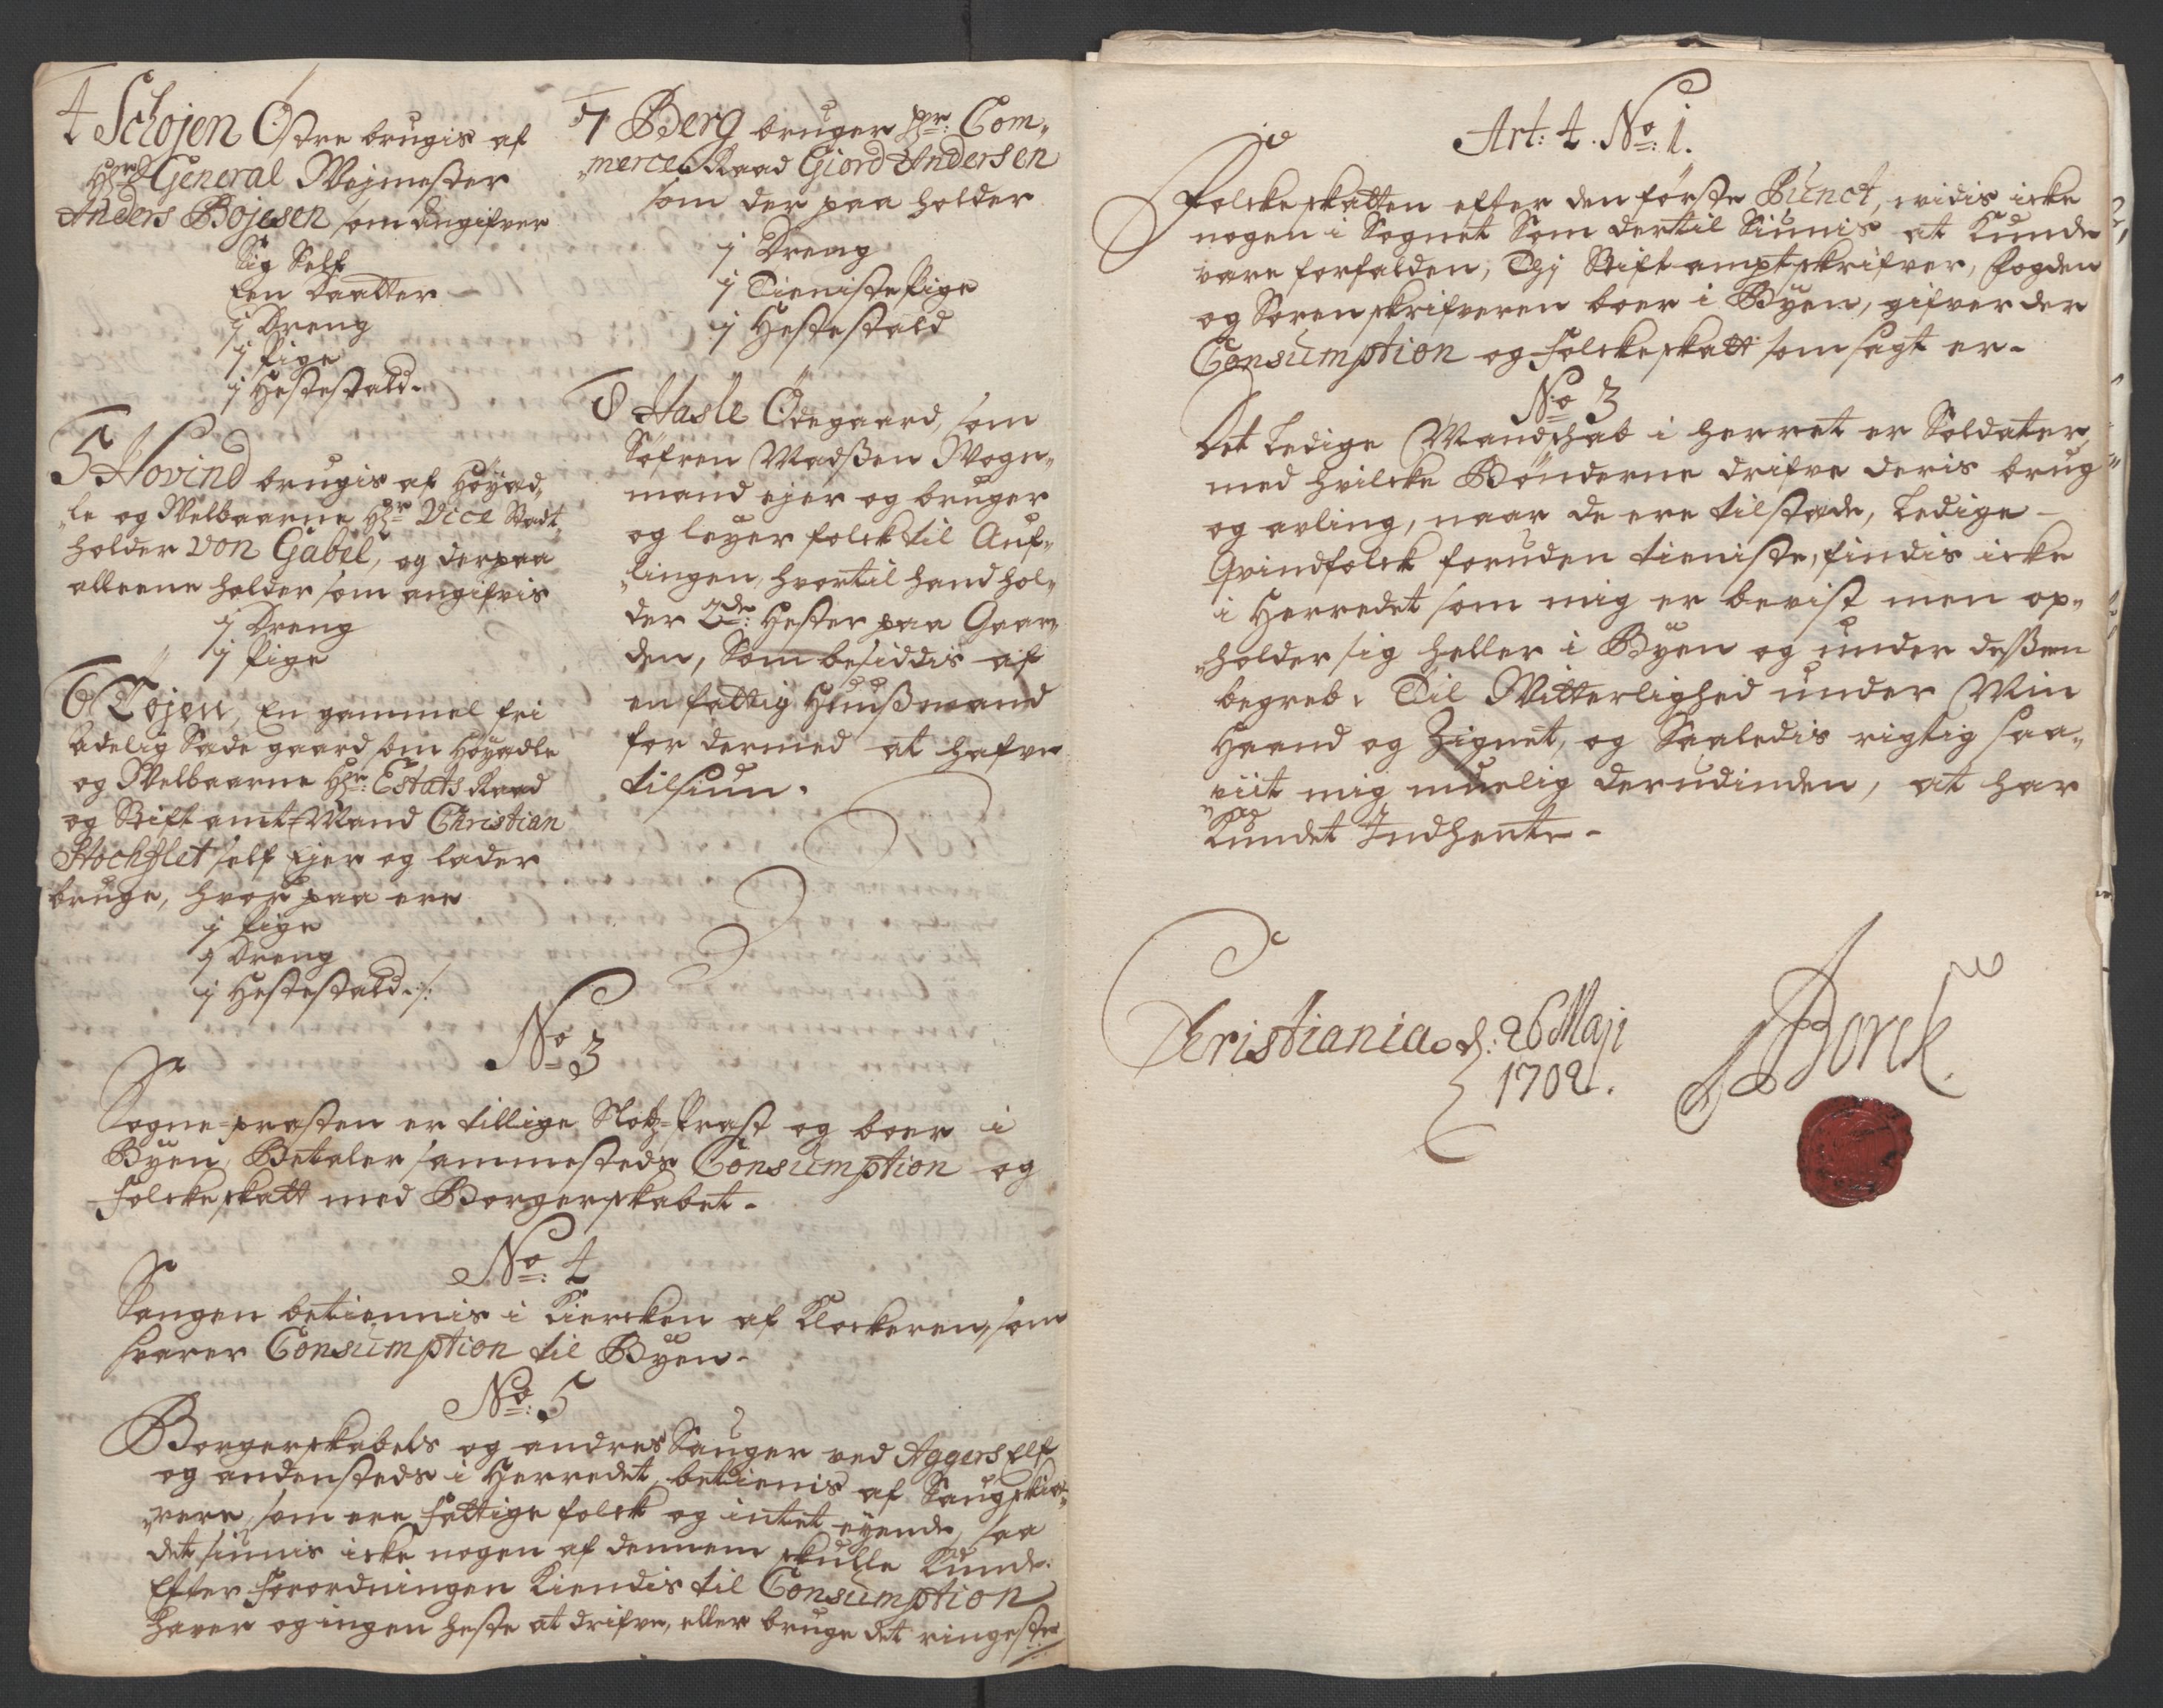 4 Schojen Östre brugis af
Hr: General Wejmester
Anders Bojesen som angifver
Sig Self
Een Daatter
j Dreng
j Pige
j Hestestald.
5 Hovind brugis af Höÿæd„
„le og Velbaarne Hr: Vice Stadt„
holder von Gabel, og derpaa
alleene holder som angifvis
j Dreng
j Pige
6 Töjen, En gammel fri
adelig Sæde gaard som Höÿædle
og Velbaarne Hr: Estats Raad
og Stiftamt-Mand Christian
Stochflet self Ejer og lader
bruge, hvor paa ere
j Pige
j Dreng
j Hestestald ./.
7 Berg bruger Hr: Com„
„merce Raad Giord Andersen
som der paa holder
j Dreng
j Tieniste Pige
j Hestestald
8 Hasle Ödegaard, som
Söfren Madsen Wogn„
mand ejer og bruger
og leyer folck til Auf„
„lingen, hvortil hand hol„
der 2de: Hester paa Gaar„
den, Som besiddis af
en fattig Huusmand
for dermed at hafve
tilsiun.
No 3
Sogne-præsten er tillige Slotz-Præst og boer i
Byen, Betaler sammesteds Consumption og
Folckeskatt med Borgerskabet.
No: 4
Sangen betiennis i Kiercken af Klockeren, som
svarer Consumption til Byen.
No: 5
Borgerskabets og andres Sauger ved Aggers Elf
og andensteds i Herredet, betienis af Saugskiæ„
„rere, som ere fattige folck og intet eÿende, saa
det siunis icke nogen af dennem skulle Kunde
Efter Forordningen Kiendis til Consumption
haver og ingen heste at drifve, eller bruge det ringeste
Art: 4. No: 1.
Folckeskatten efter den förste Punct, vidis icke
nogen i Sognet Som dertil Siunis at Kunde
være forfalden, Thj Stiftamptskrifver, Fogden
og Sorenskrifveren boer i Byen, gifver der
Consumption og Folckeskatt som sagt er.
No 3
Det Ledige Mandschab i herret er Soldater,
med hvilcke Bönderne drifve deris brug
og avling, naar de ere tilstæde, Ledige
Qvindfolck foruden tieniste, findis icke
i Herredet som mig er bevist men op„
„holder sig heller i Byen og under dessen
begreb. Til Witterlighed under Min
Haand og Zignet, og Saaledis rigtig saa„
viit mig muelig derudinden, at har
Kundet Indhente.
Christiania d: 26 Maji
1702.
Borck